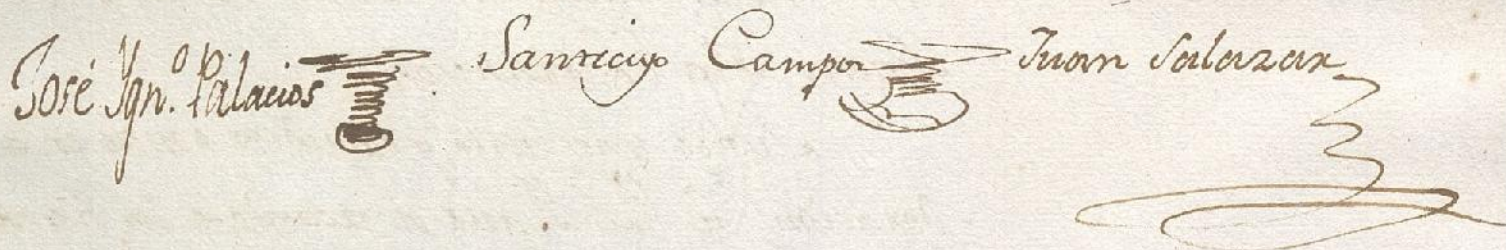 José Ygn.º Palacios Santiago Campos Juan Salazar